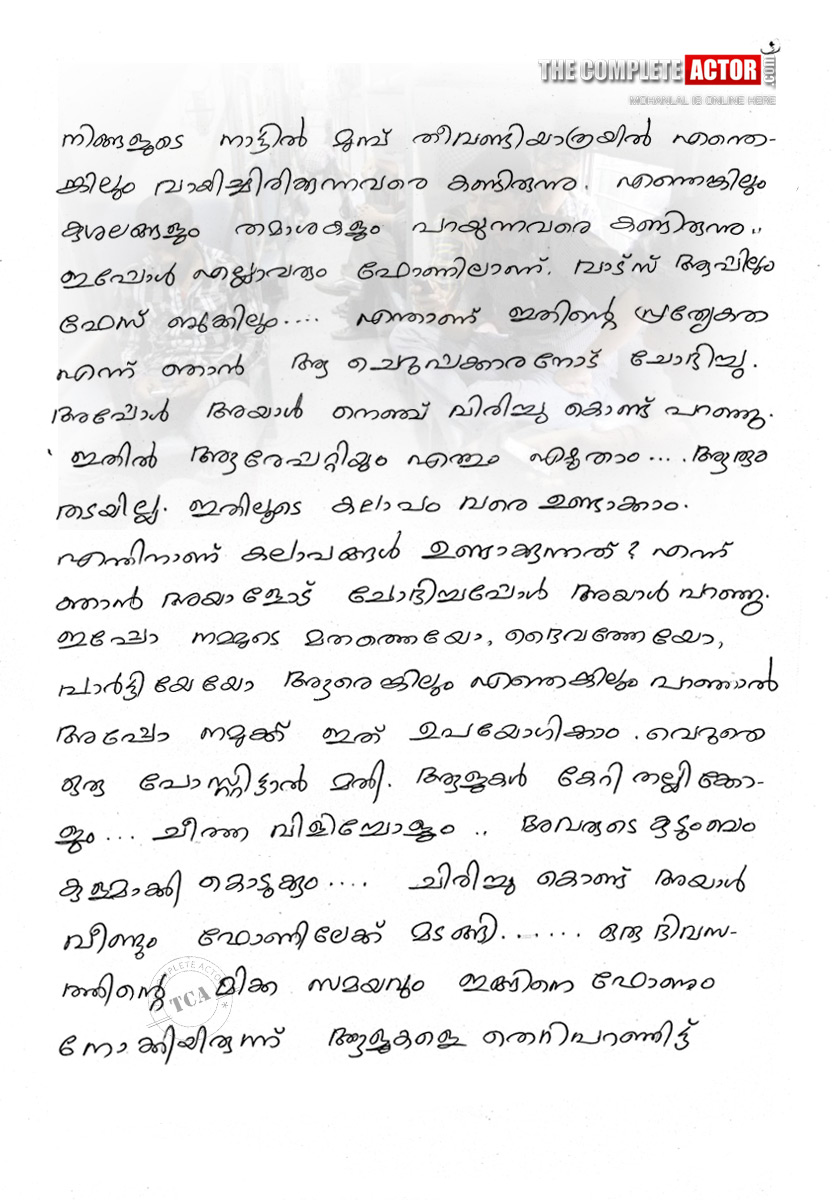 THE COMPLETE ACTOR .com
MOHANLAL IS ONLINE HERE
നിങ്ങളുടെ നാട്ടിൽ മുമ്പ് തീവണ്ടിയാത്രയിൽ എന്തെ-
ങ്കിലും വായിച്ചിരിക്കുന്നവരെ കണ്ടിരുന്നു. എന്തെങ്കിലും
കുശലങ്ങളും തമാശകളും പറയുന്നവരെ കണ്ടിരുന്നു..
ഇപ്പോൾ എല്ലാവരും ഫോണിലാണ്. വാട്സ് ആപ്പിലും
ഫേസ് ബുക്കിലും.... എന്താണ് ഇതിന്റെ പ്രത്യേകത
എന്ന് ഞാൻ ആ ചെറുപ്പക്കാരനോട് ചോദിച്ചു.
അപ്പോൾ അയാൾ നെഞ്ച് വിരിച്ചു കൊണ്ട് പറഞ്ഞു.
' ഇതിൽ ആരേപ്പറ്റിയും എന്തും എഴുതാം.... ആരും
തടയില്ല. ഇതിലൂടെ കലാപം വരെ ഉണ്ടാക്കാം.
എന്തിനാണ് കലാപങ്ങൾ ഉണ്ടാക്കുന്നത്? എന്ന്
ഞാൻ അയാളോട് ചോദിച്ചപ്പോൾ അയാൾ പറഞ്ഞു.
ഇപ്പോ നമ്മുടെ മതത്തെയോ, ദൈവത്തേയോ,
പാർട്ടിയേയോ ആരെങ്കിലും എന്തെങ്കിലും പറഞ്ഞാൽ
അപ്പോ നമുക്ക് ഇത് ഉപയോഗിക്കാം. വെറുതെ
ഒരു പോസ്റ്റിട്ടാൽ മതി. ആളുകൾ കേറി തല്ലിക്കോ-
ളും... ചീത്ത വിളിച്ചോളും .. അവരുടെ കുടുംബം
കുളമാക്കി കൊടുക്കും.... ചിരിച്ചു കൊണ്ട് അയാൾ
വീണ്ടും ഫോണിലേക്ക് മടങ്ങി....... ഒരു ദിവസ-
ത്തിന്റെ മിക്ക സമയവും ഇങ്ങിനെ ഫോണും
നോക്കിയിരുന്ന് ആളുകളെ തെറിപറഞ്ഞിട്ട്
COMPLETE ACTOR
TCA